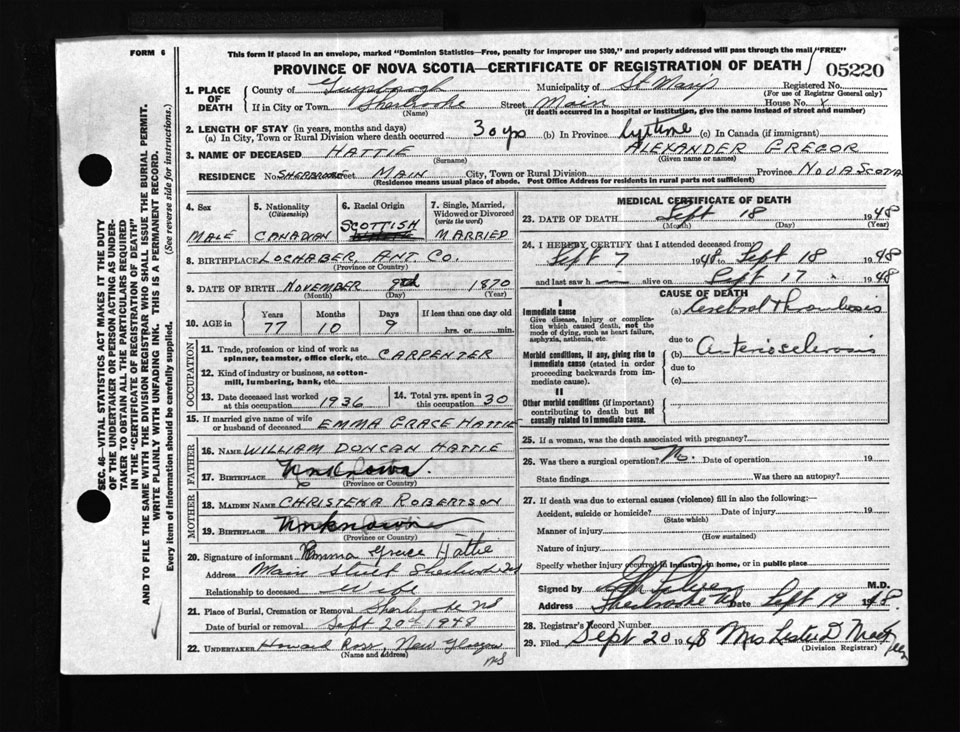 FORM 6
This form if placed in an envelope, marked "Dominion Statistics—Free, penalty for improper use $300," and properly addressed will pass through the mail "FREE"
PROVINCE OF NOVA SCOTIA—CERTIFICATE OF REGISTRATION OF DEATH
05220
1. PLACE OF DEATH
County of Guysborough Municipality of St Mary's Registered No.
(For use of Registrar General only)
If in City or Town Sherbrooke Street Main House No. X
(Name) (If death occurred in a hospital or institution, give the name instead of street and number)
2. LENGTH OF STAY (in years, months and days)
(a) In City, Town or Rural Division where death occurred 30 yrs (b) In Province Lifetime (c) In Canada (if immigrant)
3. NAME OF DECEASED HATTIE ALEXANDER GREGOR
(Surname) (Given name or names)
RESIDENCE No. SHERBROOKE Street MAIN City, Town or Rural Division Province NOVA SCOTIA
(Residence means usual place of abode. Post Office Address for residents in rural parts not sufficient)
4. Sex
MALE
5. Nationality
(Citizenship)
CANADIAN
6. Racial Origin
SCOTTISH
7. Single, Married, Widowed or Divorced
(write the word)
MARRIED
8. BIRTHPLACE LOCHABER ANT. CO.
(Province or Country)
9. DATE OF BIRTH NOVEMBER 9th 1870
(Month) (Day) (Year)
10. AGE in
Years Months Days If less than one day old
77 10 9 hrs. or min.
OCCUPATION
11. Trade, profession or kind of work as
spinner, teamster, office clerk, etc. CARPENTER
12. Kind of industry or business, as cotton-
mill, lumbering, bank, etc.
13. Date deceased last worked
at this occupation 1936
14. Total yrs. spent in
this occupation 30
15. If married give name of wife
or husband of deceased EMMA GRACE HATTIE
FATHER
16. NAME WILLIAM DUNCAN HATTIE
17. BIRTHPLACE Unknown
(Province or Country)
MOTHER
18. MAIDEN NAME CHRISTENA ROBERTSON
19. BIRTHPLACE Unknown
(Province or Country)
20. Signature of informant Emma Grace Hattie
Address Main Street Sherbrooke NS
Relationship to deceased Wife
21. Place of Burial, Cremation or Removal Sherbrooke NS
Date of burial or removal Sept 20th 1948
22. UNDERTAKER Howard Rose, New Glasgow
NS
(Name and address)
MEDICAL CERTIFICATE OF DEATH
23. DATE OF DEATH Sept 18 1948
(Month) (Day) (Year)
24. I HEREBY CERTIFY that I attended deceased from
Sept 7 1948 Sept 18 1948
and last saw h alive on Sept 17 1948
CAUSE OF DEATH
I
Immediate cause
Give disease, injury or complica-
tion which caused death, not the
mode of dying, such as heart failure,
asphyxia, asthenia, etc.
(a) Cerebral Thrombosis
due to
Morbid conditions, if any, giving rise to
immediate cause (stated in order
proceeding backwards from im-
mediate cause).
(b) Arteriosclerosis
due to
(c)
II
Other morbid conditions (if important)
contributing to death but not
causally related to immediate cause.
25. If a woman, was the death associated with pregnancy?
26. Was there a surgical operation? No. Date of operation 19
State findings Was there an autopsy?
27. If death was due to external causes (violence) fill in also the following:—
Accident, suicide or homicide? Date of injury 19
(State which)
Manner of injury
(How sustained)
Nature of injury
Specify whether injury occurred in industry, in home, or in public place
Signed by M.D.
Address Sherbrooke NS Date Sept 19 1948.
28. Registrar's Record Number
29. Filed Sept 20 1948 Mrs Lester D
(Division Registrar)
SEC. 46—VITAL STATISTICS ACT MAKES IT THE DUTY
OF THE UNDERTAKER OR PERSON ACTING AS UNDER-
TAKER TO OBTAIN ALL THE PARTICULARS REQUIRED
IN THE "CERTIFICATE OF REGISTRATION OF DEATH"
AND TO FILE THE SAME WITH THE DIVISION REGISTRAR WHO SHALL ISSUE THE BURIAL PERMIT.
WRITE PLAINLY WITH UNFADING INK. THIS IS A PERMANENT RECORD.
Every item of information should be carefully supplied. (See reverse side for instructions.)